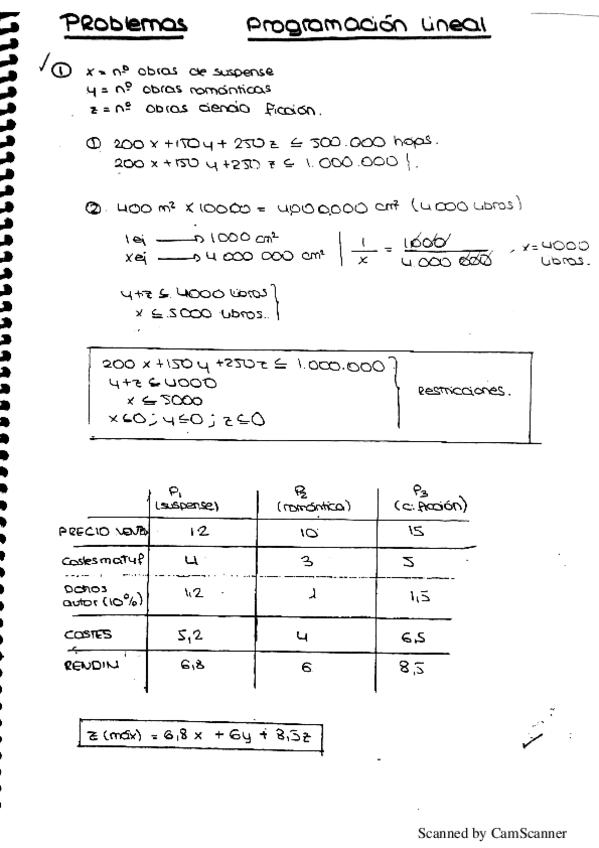 Problemas Programación Lineal
① x = nº obras de suspense
y = nº obras románticas
z = nº obras ciencia ficción.
① 200 x + 150 y + 250 z ≤ 500.000 hojas.
200 x + 150 y + 250 z ≤ 1.000.000
② 400 m² x 10000 = 4.000.000 cm² (4000 libros)
1 ej → 1000 cm² | 1/x = 1000/4.000.000 , x = 4000
x ej → 4 000 000 cm² libros.
y + z ≤ 4000 libros
x ≤ 5000 libros.
200 x + 150 y + 250 z ≤ 1.000.000
y + z ≤ 4000
Restricciones.
x ≤ 5000
x ≤ 0; y ≤ 0; z ≤ 0
P₁ P₂ P₃
(suspense) (romántica) (c. ficción)
PRECIO VENTA 12 10 15
Costes 4 3 5
autor (10%) 1,2 1 1,5
COSTES 5,2 4 6,5
RENDIM 6,8 6 8,5
z (máx) = 6,8 x + 6y + 8,5z
Scanned by CamScanner